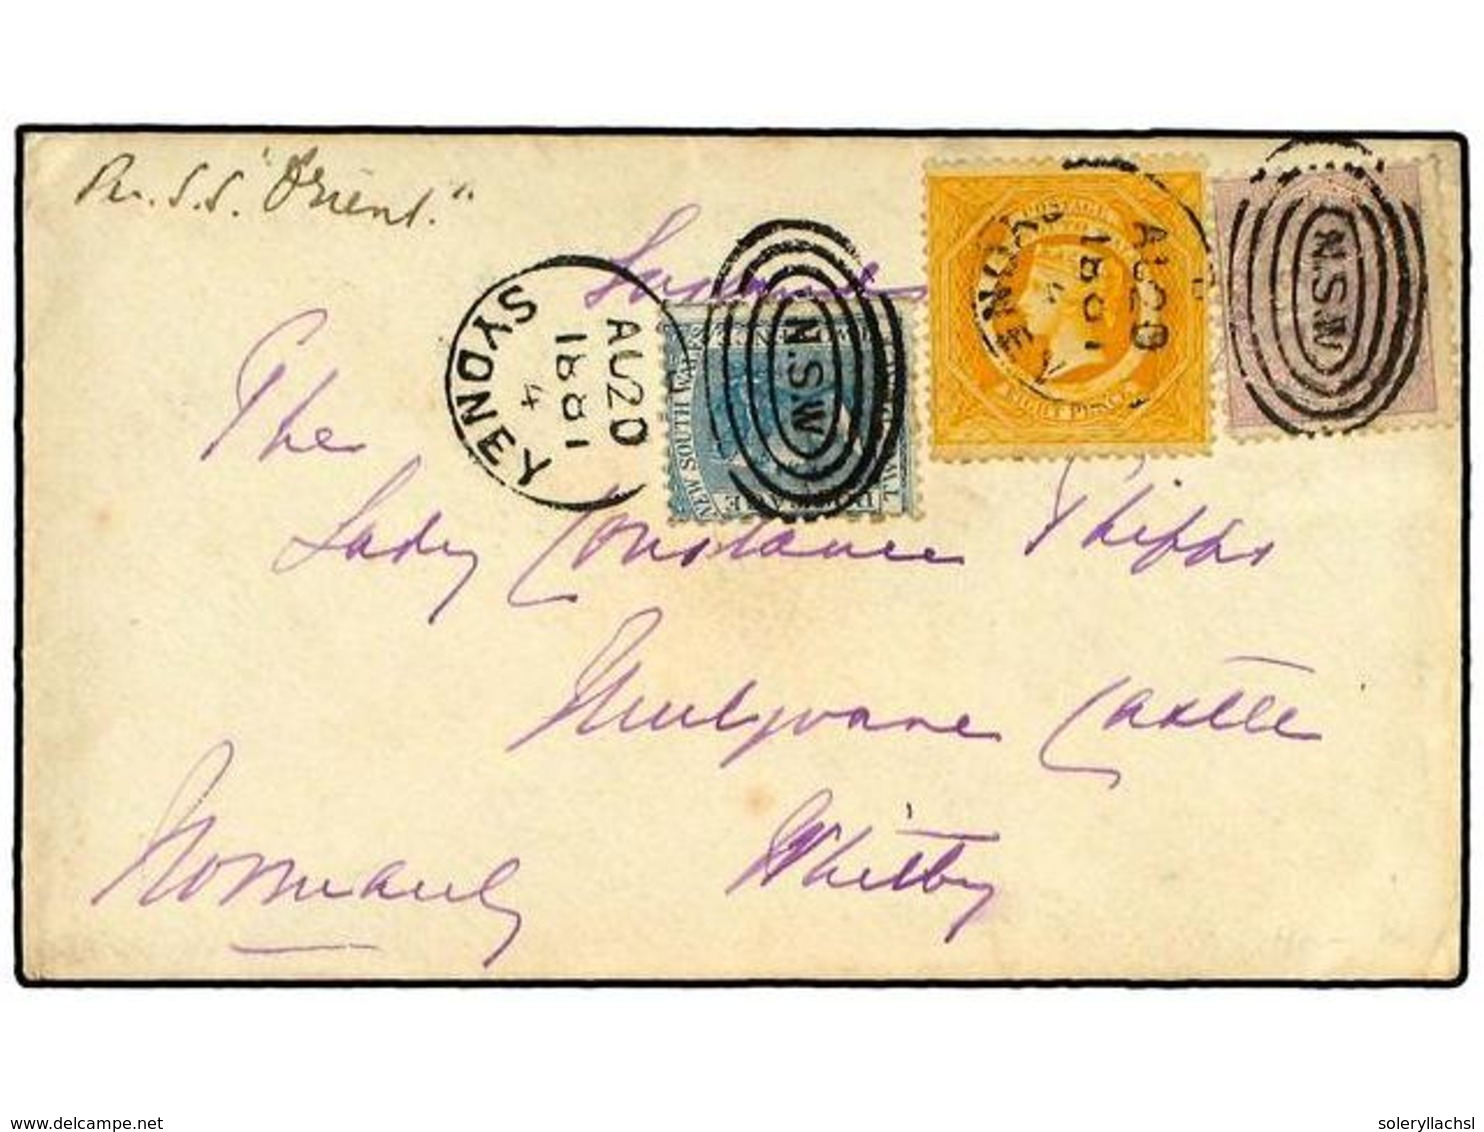 Per S.S. "Orient."
The
Lady Constance Phipps
Mulgrave Castle
Whitby
Normanby
SYDNEY
AU 20
1881
4
N.S.W
NEW SOUTH WALES
POSTAGE
EIGHT PENCE
SYDNEY
AU 20
1881
4
N.S.W
delcampe.net
soleryllachsl